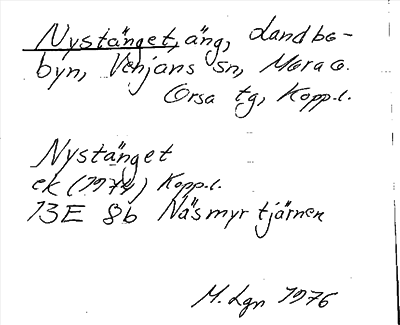 Nystänget, äng, Landbo-
byn, Venjans sn, Mora o.
Orsa tg, Kopp.l.
Nystänget
ek (1974) Kopp.l.
13E 8b Näsmyrtjärnen
M. Lgn 1976